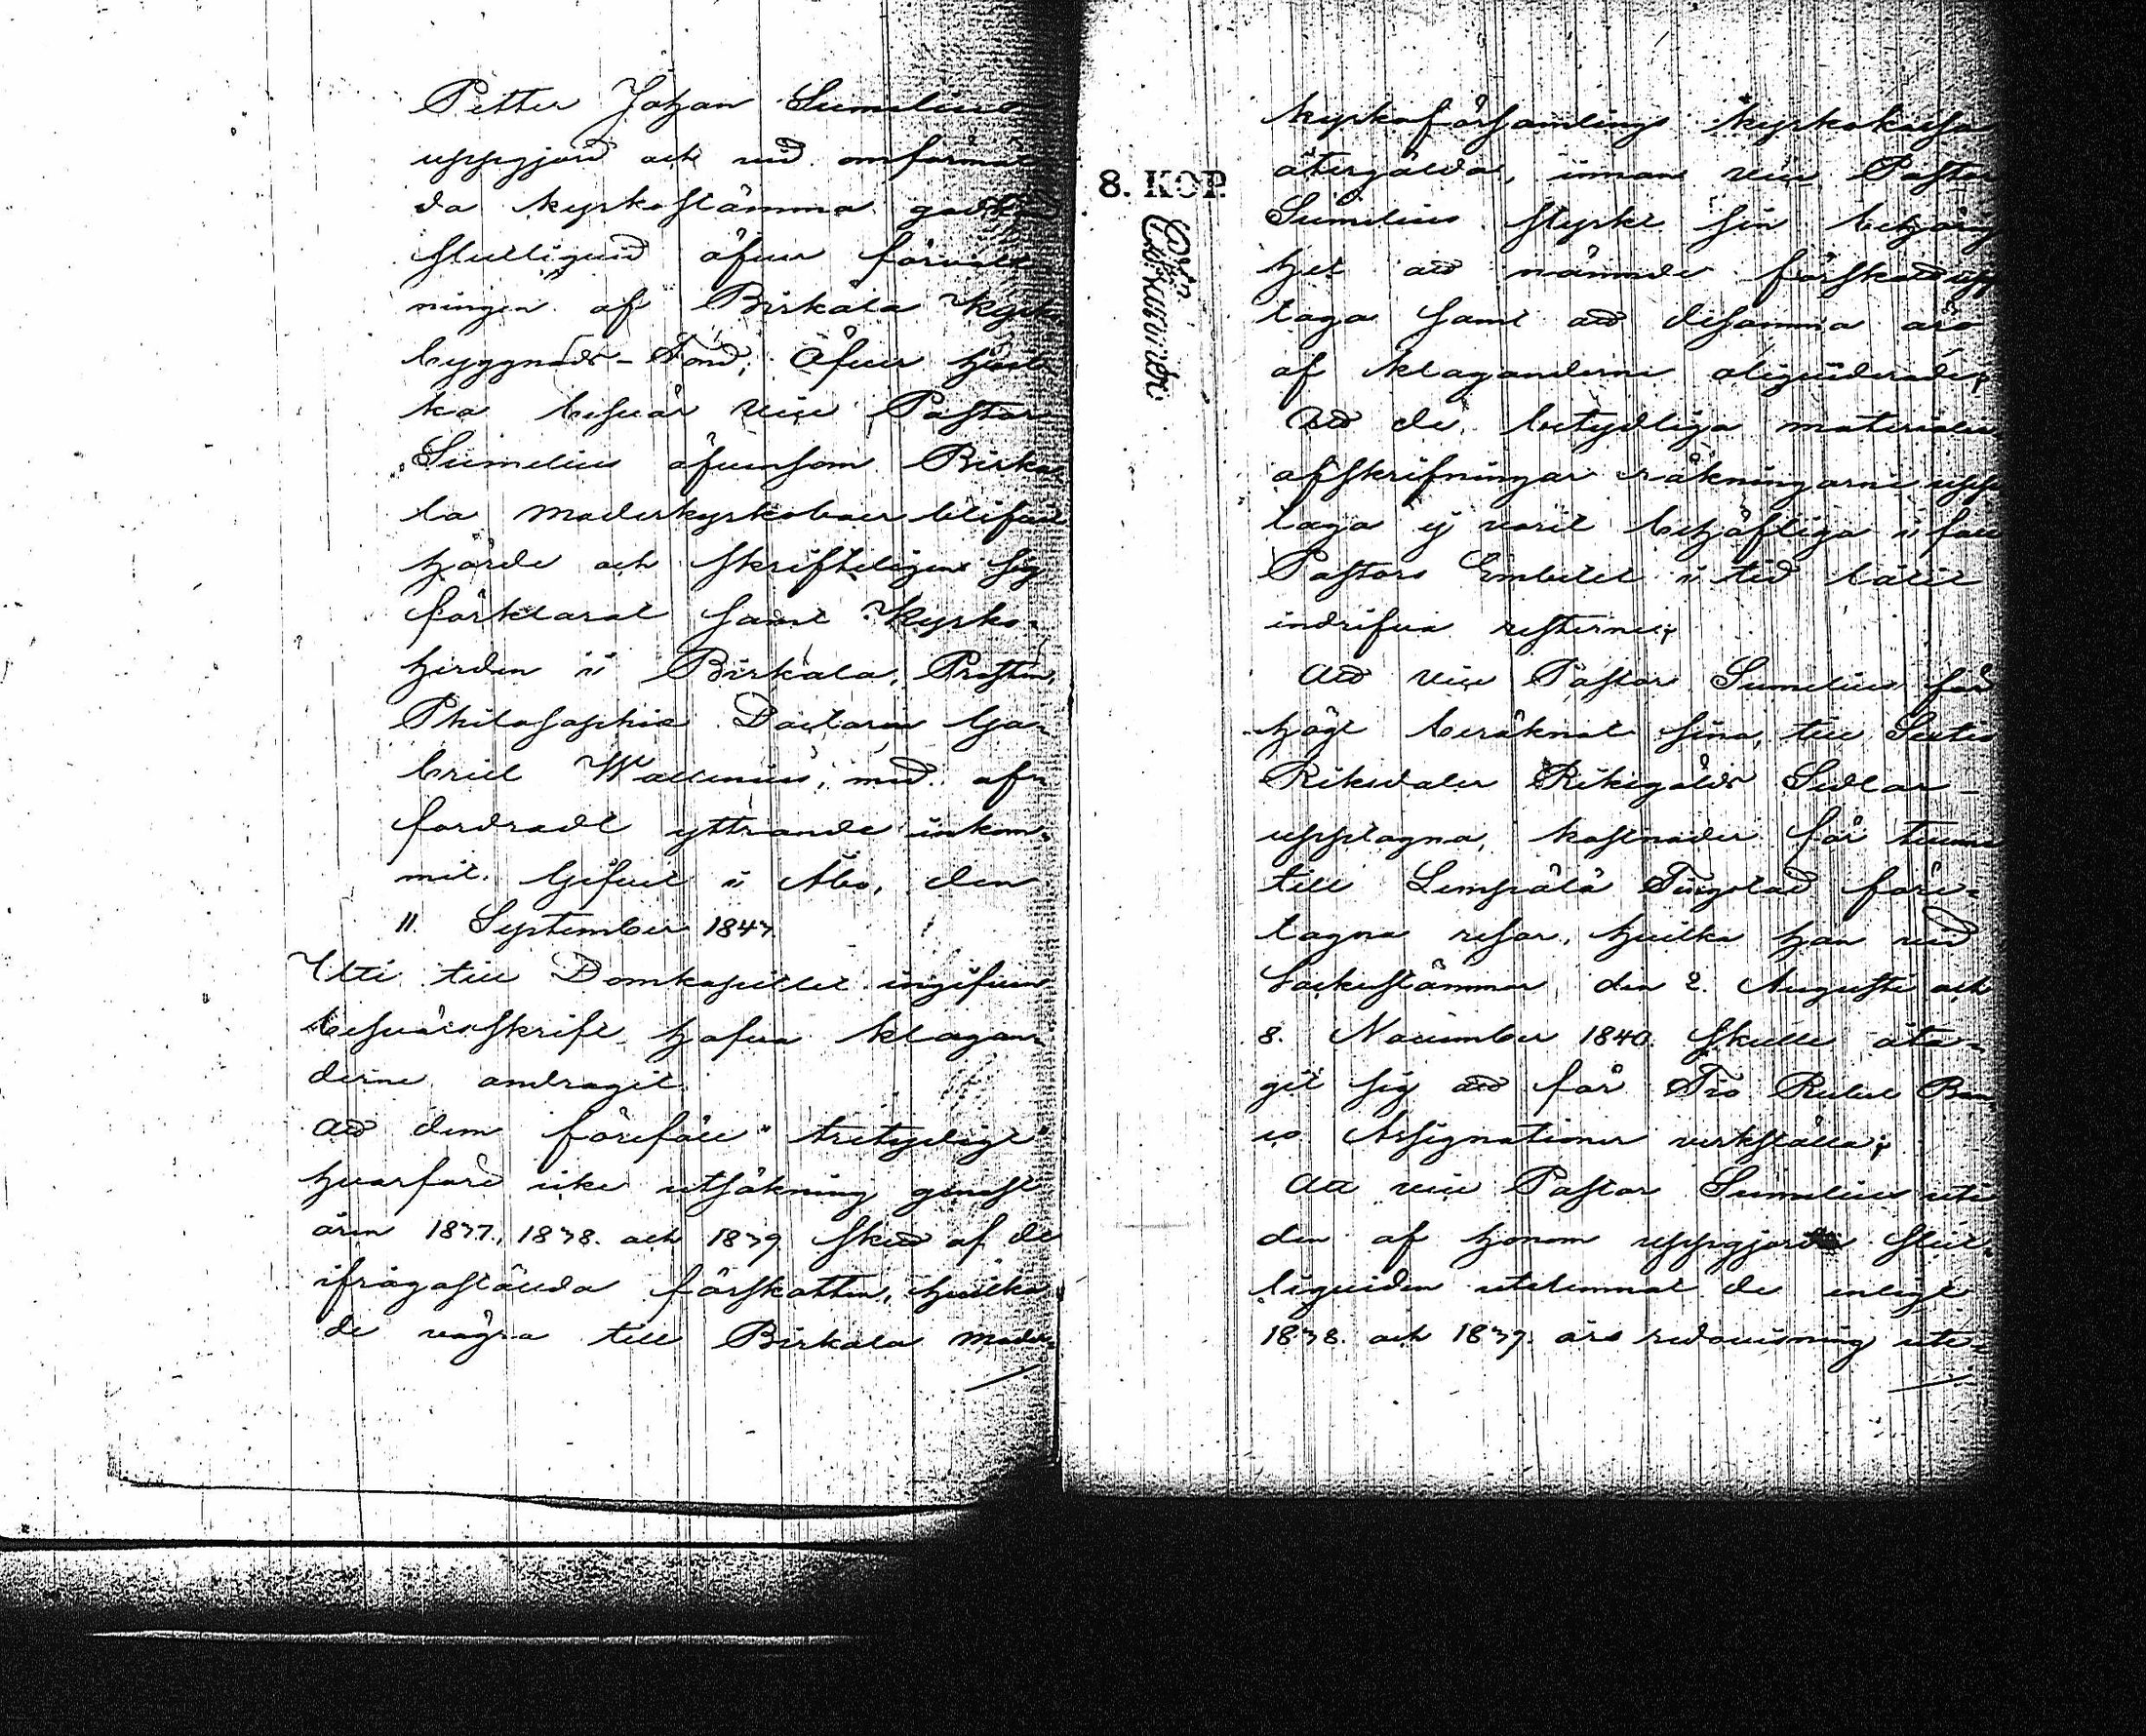 Petter Johan Sumelius
uppgjord och vid omförmäl
da kyrkostämma godkänd
slutliquid öfver förvalt
ningen af Birkala Kyrko
byggnads-Fond; Öfver hvil
ka besvär vice Pastor
Sumelius äfvensom Birka
la moderkyrkoboer blifvit
hörde och skrifteligen sig
förklarat samt Kyrko-
herden i Birkala, Prosten,
Philosophiæ Doctoren Ga-
briel Wallenius, med af-
fordradt yttrande inkom-
mit. Gifvet i Åbo, den
11. September 1847
Uti till Domkapitlet ingifven
besvärsskrift hafva klagan-
derne andragit
Att dem förefölle "tvetydligt"
hvarföre icke utsökning genast
åren 1837., 1838. och 1839 skedt af de
ifrågaställda förskotten, hvilka
de vägra till Birkala moder-
8. KOP.
kyrkoförsamlings kyrkokassa
återgälda, innan vice Pastor
Sumelius styrkt sin behörig
het att nämnde förskott upp
taga samt att desamma äro
af klaganderne oliquiderade;
Att de betydliga materialier
afskrifningar räkningarne upp
taga ej varit behöfliga i fall
Pastors Embetet i tid låtit
indrifva resterne;
Att vice Pastor Sumelius för
högt beräknat sina, till Sextio
Riksdaler Riksgälds Sedlar
upptagna, kostnader för tvenne
till Lempälä Tingstad före-
tagna resor, hvilka han vid
Sockenstämmor den 2. Augusti och
8. November 1840. skulle åta-
git sig att för Tio Rubel Ban
co Assignationer verkställa;
Att vice Pastor Sumelius uti
den af honom uppgjorda slut-
liquiden utelemnat de enligt
1838. och 1839. års redovisning ute-